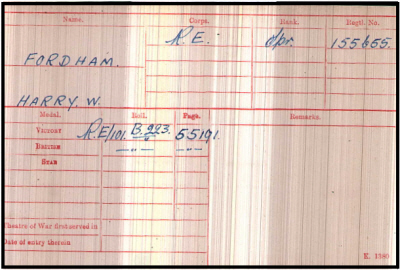 Name. Corps. Rank. Regtl. No.
R.E. Spr. 155655.
FORDHAM.
HARRY. W.
Medal. Roll. Page. Remarks.
VICTORY R.E/101. B.293. 55191.
BRITISH — " — — " —
STAR
Theatre of War first served in
Date of entry therein
K. 1380